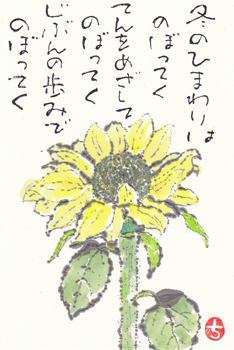 冬のひまわりは
のぼってく
てんをめざして
のぼってく
じぶんの歩みで
のぼってく